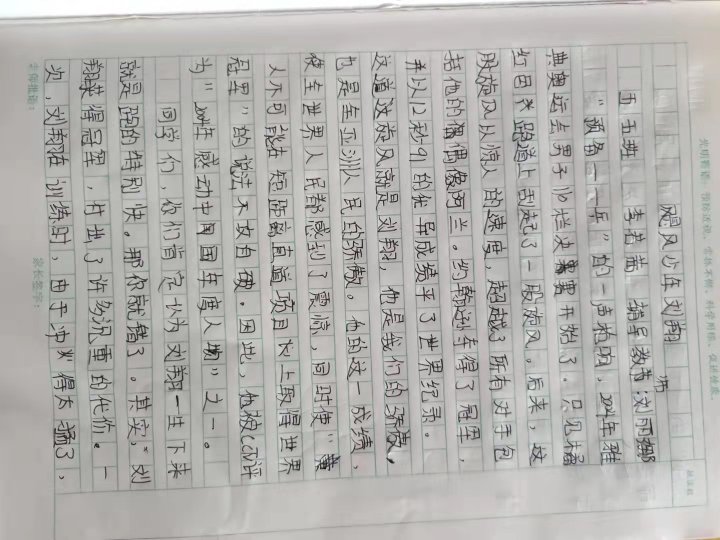 飓风少年刘翔
五五班 李若茜 辅导教师:刘丽娜
“预备——乒”的一声枪响,2004年雅
典奥运会男子110栏决赛开始了。只见橘
红田个跑道上刮起了一股旋风。后来,这
股旋风从惊人的速度,超越了所有对手包
括他的偶像阿兰。约翰逊夺得了冠军,
并以12秒91的优异成绩平了世界纪录。
这道这旋风就是刘翔,他是我们的骄傲,
也是全亚洲人民的骄傲。他的这一成绩,
使全世界人民都感到了震惊,同时使“黄
人不可能在短距离直道项目上取得世界
冠军”的说法不攻自破。因此,他被CCTV评
为“2004年感动中国年度人物”之一。
同学们,你们肯定认为刘翔一生下来
就是强的特别快。那你就错了。其实,刘
翔获得冠军,付出了许多沉重的代价。一
次,刘翔在训练时,由于冲得太猛了,
老师批语:
家长签字: